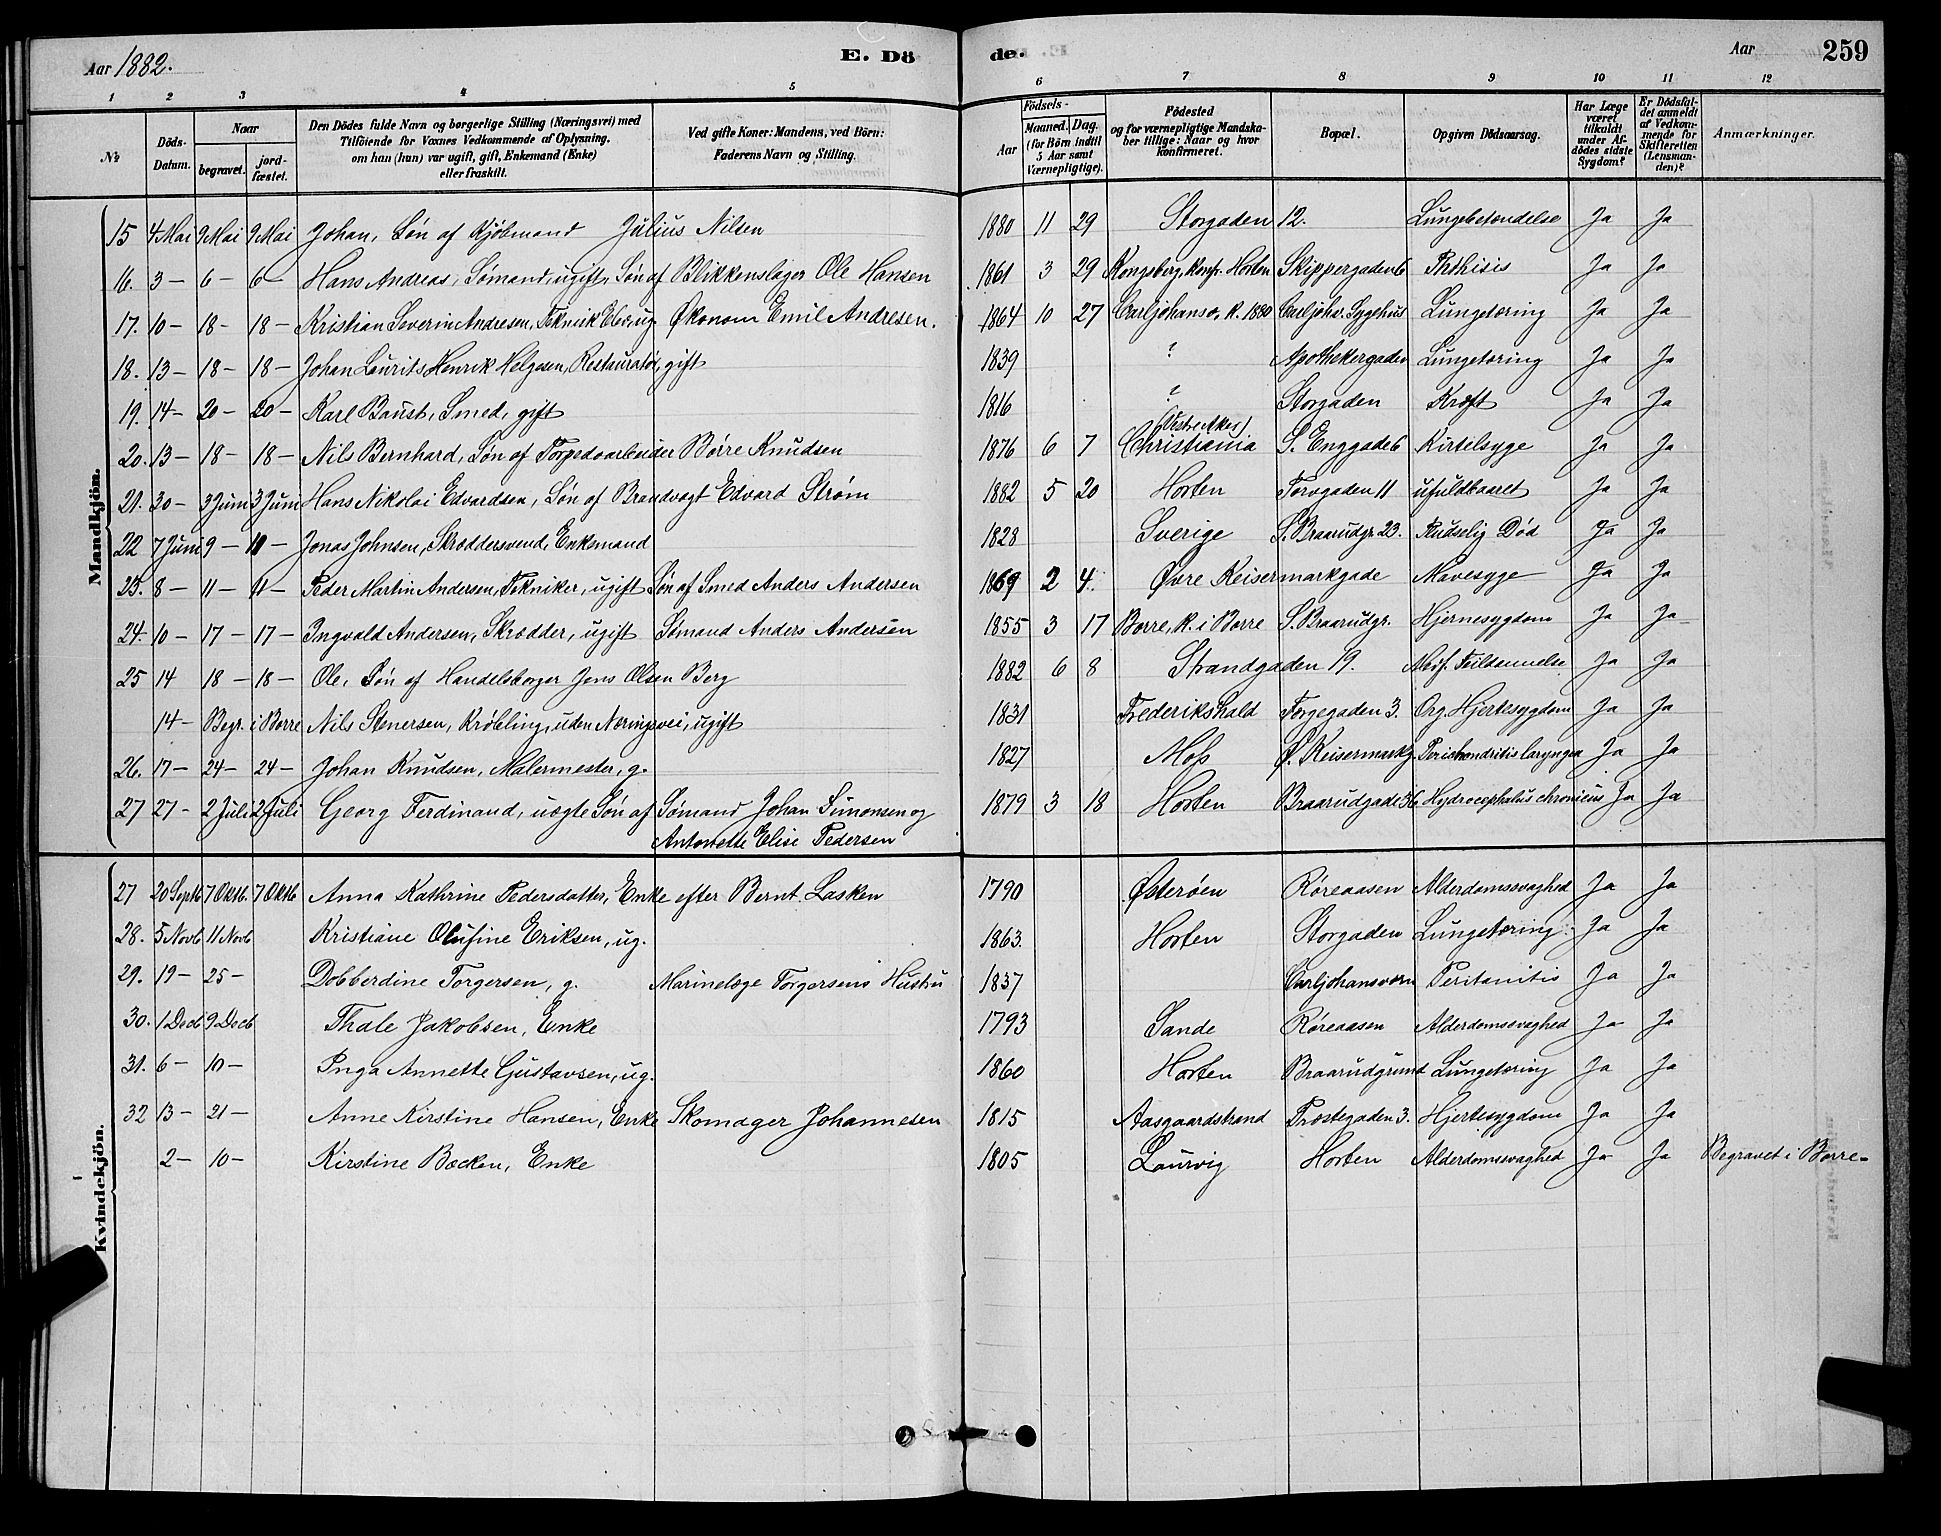 Aar 1882.
E. Dö
de.
Aar
259
1 2 3 4 5 6 7 8 9 10 11 12
No
Döds-Datum.
Naar
begravet.
jord-fæstet.
Den Dödes fulde Navn og borgerlige Stilling (Næringsvei) med
Tilföiende for Voxnes Vedkommende af Oplysning,
om han (hun) var ugift, gift, Enkemand (Enke)
eller fraskilt.
Ved gifte Koner: Mandens, ved Börn:
Faderens Navn og Stilling.
Födsels-
Aar
Maaned. Dag.
(for Börn indtil
5 Aar samt
Værnepligtige).
Födested
og for værnepligtige Mandska-
ber tillige: Naar og hvor
konfirmeret.
Bopæl.
Opgiven Dödsaarsag.
Har Læge
været
tilkaldt
under Af-
dödes sidste
Sygdom?
Er Dödsfal-
det anmeldt
af Vedkom-
mende for
Skifteretten
(Lensman-
den)?
Anmærkninger.
Mandkjön.
15 4 Mai 9 Mai 9 Mai Johan, Søn af Kjøbmand Julius Nilsen 1880 11 29 Storgaden 12. Lungebetændelse Ja Ja
16. 3 – 6 – 6 – Hans Andreas, Sømand, ugift, Søn af Blikkenslager Ole Hansen 1861 3 29 Kongsberg, konf. Horten Skippergaden 6 Phthisis Ja Ja
17. 10 – 18 – 18 – Kristian Severin Andresen, Teknisk Elev, ug. Økonom Emil Andresen. 1864 10 27 Carljohansv. k. 1880 Carljohv. Sygehus Lungetæring Ja Ja
18. 13 – 18 – 18 – Johan Laurits Henrik Helgesen, Restauratør, gift 1839 ? Apothekergaden Lungetæring Ja Ja
19. 14 – 20 – 20 – Karl Baust, Smed, gift 1816 ? Storgaden Kræft Ja Ja
20. 13 – 18 – 18 – Nils Bernhard, Søn af Torpedoarbeider Børre Knudsen 1876 6 7 (Vestre Aker) Christiania S. Enggade 6 Kirtelsyge Ja Ja
21. 30 – 3 Juni 3 Juni Hans Nikolai Edvardsen, Søn af Brandvagt Edvard Strøm 1882 5 20 Horten Torvgaden 11 ufuldbaaret Ja Ja
22 7 Juni 9 – 10 – Jonas Johnsen, Skræddersvend, Enkemand 1828 Sverige S. Braarudgr. 23. Pludselig Død Ja Ja
23. 8 – 11 – 11 – Peder Martin Andersen, Tekniker, ugift Søn af Smed Anders Andersen 1869 2 4. Øvre Keisermarkgade Mavesyge Ja Ja
24. 10 – 17 – 17 – Ingvald Andersen, Skrædder, ugift Sømand Anders Andersen 1855 3 17 Borre, k. i Borre S. Braarudgr. Hjernesygdom Ja Ja
25 14 18 – 18 – Ole, Søn af Handelsborger Jens Olsen Berg 1882 6 8 Strandgaden 19. Ja Ja
14 – Begr. i Borre Nils Stenersen, Krøbling, uden Næringsvei, ugift 1831 Frederikshald Torgegaden 3. Org. Hjertesygdom Ja Ja
26. 17 – 24 – 24 – Johan Knudsen, Malermester, g. 1827 Moss Ø. Keisermarkg. Perichondritis laryngea Ja Ja
27 27 – 2 Juli 2 Juli Georg Ferdinand, uægte Søn af Sømand Johan Simonsen og 1879 3 18 Horten Braarudgade 36 Hydrocephalus chronicus Ja Ja
Antonette Elise Pedersen
Kvindekjön.
27 20 Septb 7 Oktb. 7 Oktb Anna Kathrine Pedersdatter, Enke efter Bernt Lasken 1790 Østerøen Røreaasen Alderdomsvaghed Ja Ja
28. 5 Novb 11 Novb Kristiane Olufine Eriksen, ug. 1863. Horten Storgaden Lungetæring Ja Ja
29. 19 – 25 – Dobberdine Torgersen, g. Marinelæge Torgersens Hustru 1837 Carljohansværn Peritonitis Ja Ja
30. 1 Decb 9 Decb Thale Jakobsen, Enke 1793 Sande Røreaasen Alderdomsvaghed Ja Ja
31. 6 – 10 – Inga Annette Gustavsen, ug. 1860 Horten Braarudgrund Lungetæring Ja Ja
32 13 – 21 – Anne Kirstine Hansen, Enke Skomager Johannesen 1815 Aasgaardstrand Prestegaden 3. Hjertesygdom Ja Ja
2 – 10 – Kirstine Bæcken, Enke 1805 Laurvig Horten Alderdomsvaghed Ja Ja Begravet i Borre –